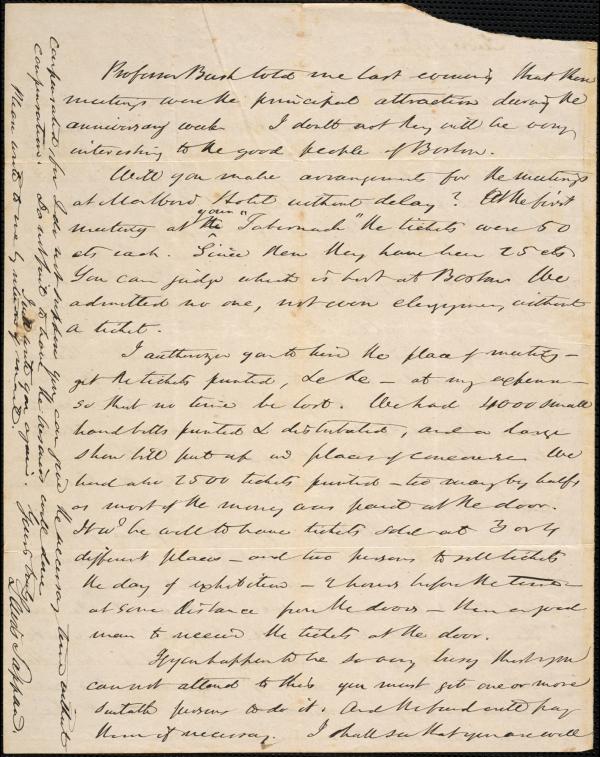 Professor Bush told me last evening that these
meetings were the principal attraction during the
anniversary week. I doubt not they will be very
interesting to the good people of Boston.
Will you make arrangements for the meetings
at Marlboro' Hotel without delay? At the first
meeting at the your "Tabernacle" the tickets were 50
cts each. Since then they have been 25 cts
You can judge which is best at Boston We
admitted no one, not even clergymen, without
a ticket.
I authorize you to hire the place of meeting –
get the tickets printed, &c &c – at my expense –
so that no time be lost. We had 4000 small
hand bills printed & distributed, and a large
show bill put up in places of concourse We
had also 2500 tickets printed – too many by half
as most of the money was paid at the door.
It wd be well to have tickets sold at 3 or 4
different places – and two persons to sell tickets
the day of exhibition – 2 hours before the time –
at some distance from the doors – then a good
man to receive the tickets at the door.
If you happen to be so very busy that you
cannot attend to this you must get one or more
suitable persons to do it. And the fund will pay
them if necessary. I shall see that you are well
compensated for I do not suppose you can give the necessary time without
compensation. Do not fail to have the business well done
I will write you again. Yours truly
Mean write to me by return of mail. Lewis Tappan